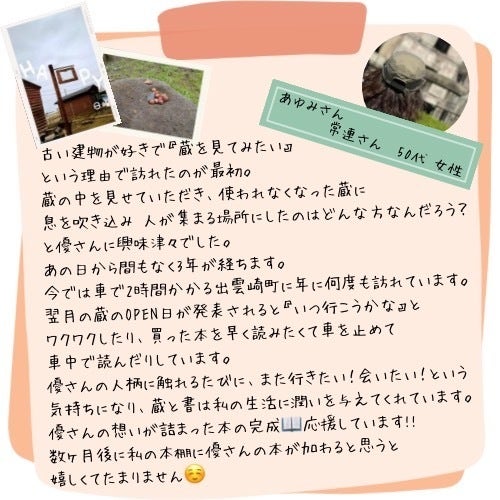 HAPPY
あゆみさん
常連さん 50代 女性
古い建物が好きで『蔵を見てみたい』
という理由で訪れたのが最初。
蔵の中を見せていただき、使われなくなった蔵に
息を吹き込み 人が集まる場所にしたのはどんな方なんだろう?
と優さんに興味津々でした。
あの日から間もなく3年が経ちます。
今では車で2時間かかる出雲崎町に年に何度も訪れています。
翌月の蔵のOPEN日が発表されると『いつ行こうかな』と
ワクワクしたり、買った本を早く読みたくて車を止めて
車中で読んだりしています。
優さんの人柄に触れるたびに、また行きたい!会いたい!という
気持ちになり、蔵と書は私の生活に潤いを与えてくれています。
優さんの想いが詰まった本の完成📖応援しています!!
数ヶ月後に私の本棚に優さんの本が加わると思うと
嬉しくてたまりません☺️